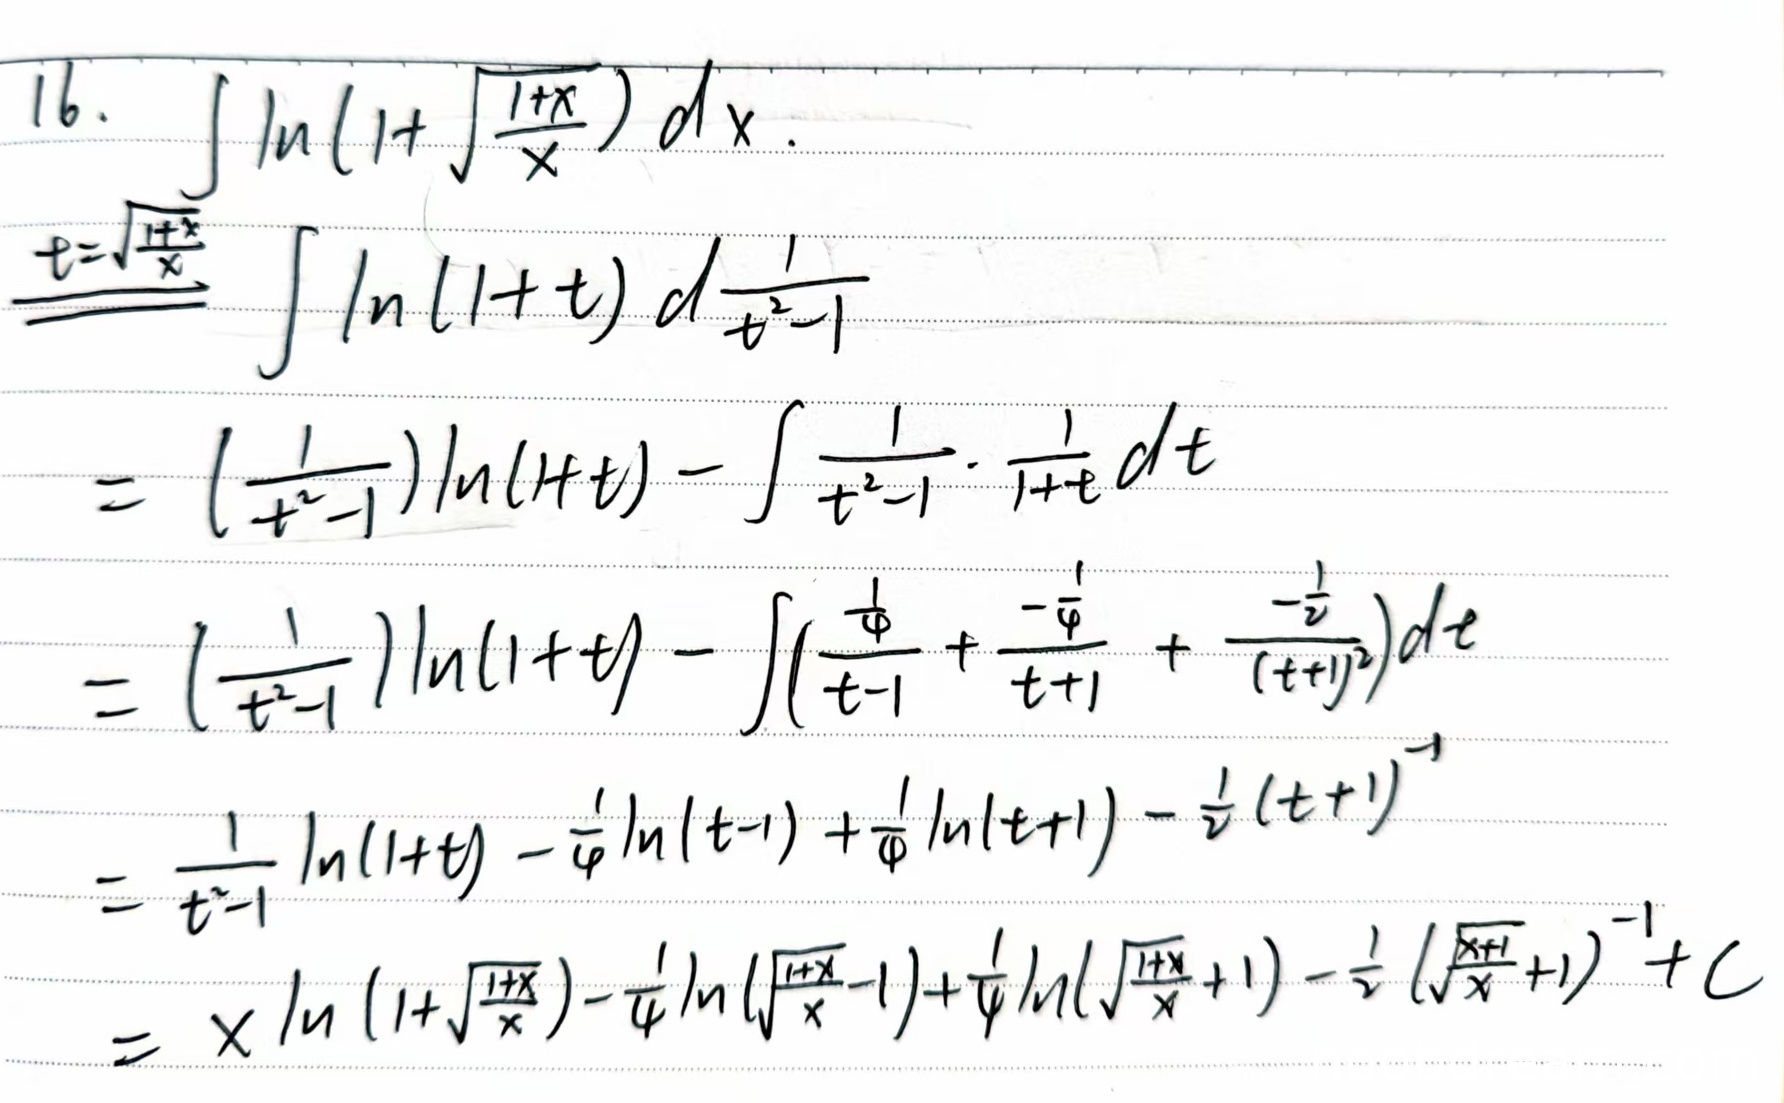 16. ∫ ln(1+√((1+x)/x)) dx.
t=√((1+x)/x) ∫ ln(1+t) d 1/(t²-1)
= (1/(t²-1)) ln(1+t) - ∫ 1/(t²-1) · 1/(1+t) dt
= (1/(t²-1)) ln(1+t) - ∫((1/4)/(t-1) + (-1/4)/(t+1) + (-1/2)/(t+1)²) dt
= 1/(t²-1) ln(1+t) - 1/4 ln(t-1) + 1/4 ln(t+1) - 1/2 (t+1)⁻¹
= x ln(1+√((1+x)/x)) - 1/4 ln(√((1+x)/x) -1) + 1/4 ln(√((1+x)/x) +1) - 1/2 (√((x+1)/x) +1)⁻¹ + C